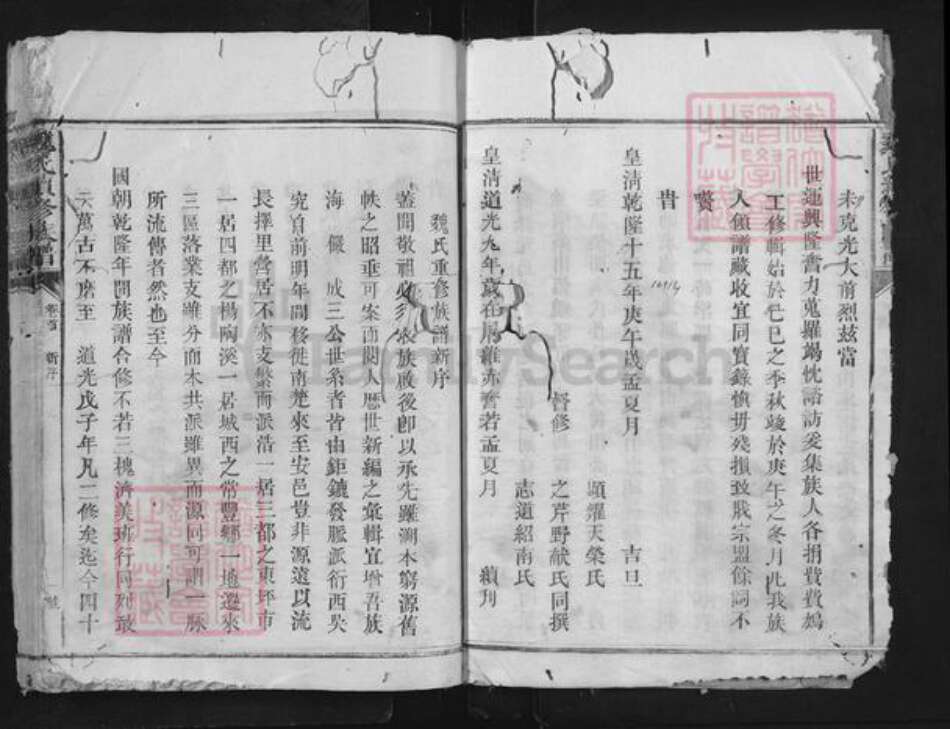 未克光大前烈茲當
世運興隆奮力蒐羅竭忱諮訪爰集族人各捐費費鳩
工修輯始於己巳之季秋竣於庚午之冬月此我族
人領譜藏收宜同寶錄慎毋殘損致戕宗盟餘詞不
贅
旹
皇清乾隆十五年庚午歲孟夏月 吉旦
顯耀天榮氏
督修 之芹野猷氏同撰
志道紹南氏
皇清道光九年歲在屠維赤奮若孟夏月 續刊
魏氏重修族譜新序
蓋聞敬祖必須收族啟後卽以承先雖溯本窮源舊
帙之昭垂可案而閱人歷世新編之彙輯宜增吾族
海 儼 成三公世系者皆由鉅鏕發脈派衍西吳
究自前明年間移徙南楚來至安邑豈非源遠以流
長擇里營居不亦支繁而派浩一居三都之東坪市
一居四都之楊陶溪一居城西之常豐鄉一地遷來
三區落業支雖分而木共派雖異而源同可謂一脈
所流傳者然也至今
國朝乾隆年間族譜合修不若三槐濟美班行同列敢
云萬古不磨至 道光戊子年凡二修矣迄今四十
卷首 新序
Family Search